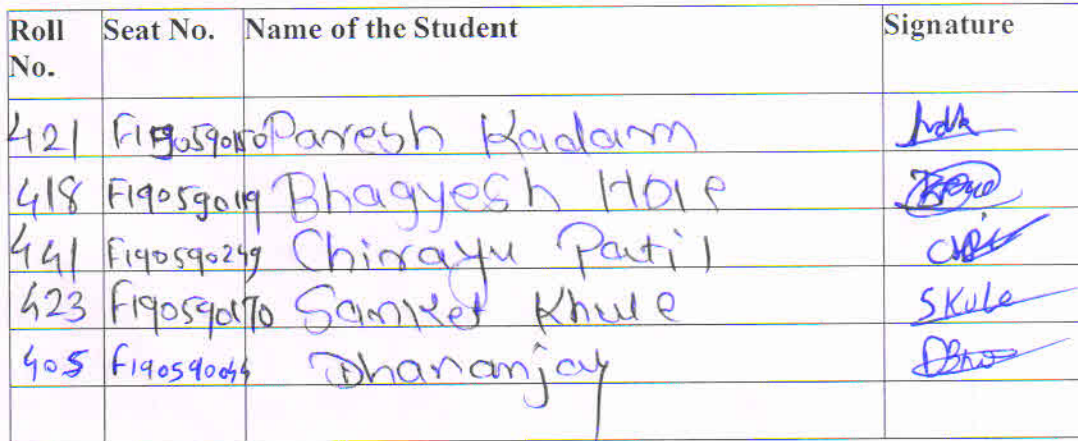 Roll No. Seat No. Name of the Student Signature
421 F190590150 Paresh Kadam
418 F190590119 Bhagyesh Hole
441 F190590249 Chirayu Patil
423 F190590170 Sanket Khule SKule
405 F190590044 Dhananjay